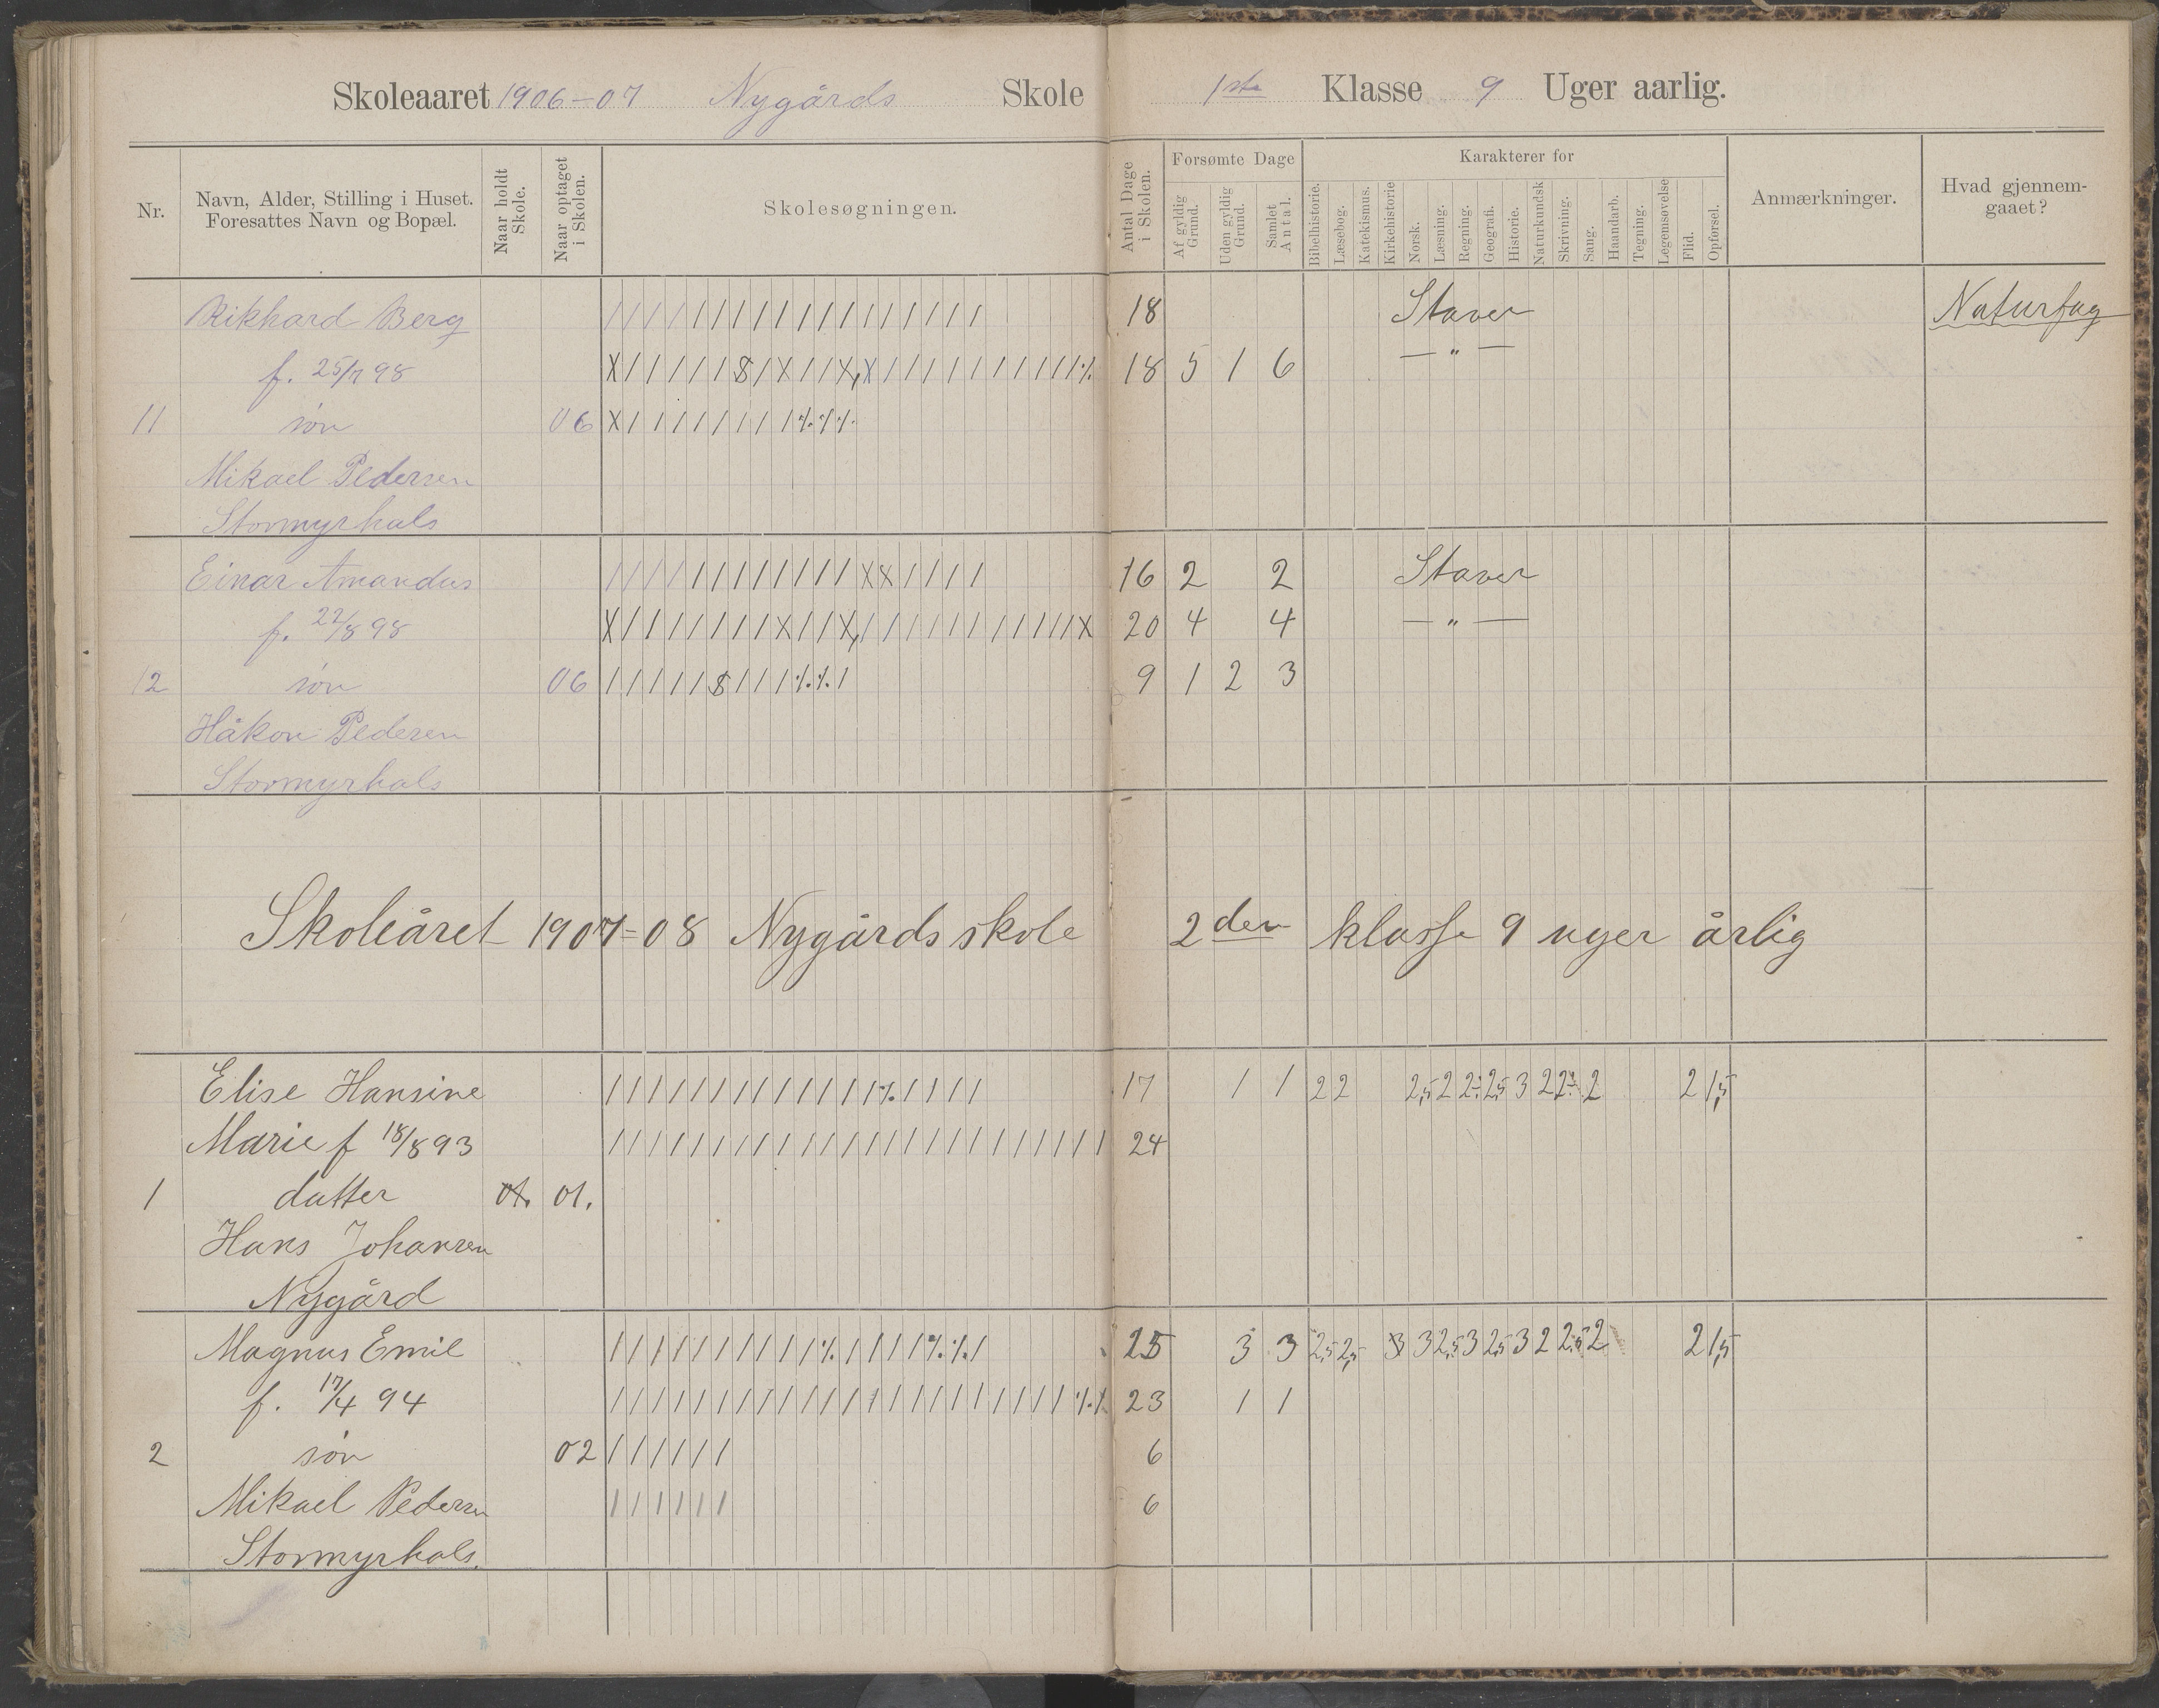 Skoleaaret 1906-07 Nygårds Skole 1ste Klasse 9 Uger aarlig.
Nr.
Navn, Alder, Stilling i Huset.
Foresattes Navn og Bopæl.
Naar holdt
Skole.
Naar optaget
i Skolen.
Skolesøgningen.
Antal Dage
i Skolen.
Forsømte Dage
Af gyldig
Grund.
Uden gyldig
Grund.
Samlet
Antal.
Karakterer for
Bibelhistorie.
Læsebog.
Katekismus.
Kirkehistorie
Norsk.
Læsning.
Regning.
Geografi.
Historie.
Naturkundsk
Skrivning.
Sang.
Haandarb.
Tegning.
Legemsøvelse
Flid.
Opførsel.
Anmærkninger.
Hvad gjennem-
gaaet?
Rikhard Berg 18 Staver Naturfag
f. 25/7 98 18 5 1 6 — " —
11 søn 06
Mikael Pedersen
Stormyrhals
Einar Amandus 16 2 2 Staver
f. 22/8 98 20 4 4 — " —
12 søn 06 9 1 2 3
Håkon Pedersen
Stormyrhals
Skoleåret 1907-08 Nygårds skole 2den klasse 9 uger årlig
Elise Hansine 17 1 1 2 2 2,5 2 2÷ 2,5 3 2 2÷ 2 2 1,5
Marie f 18/8 93 24
1 datter 01. 01.
Hans Johansen
Nygård
Magnus Emil 25 3 3 2,5 2,5 3 3 2,5 3 2,5 3 2 2,5 2 2 1,5
f. 17/4 94 23 1 1
2 søn 02 6
Mikael Pedersen 6
Stormyrhals.